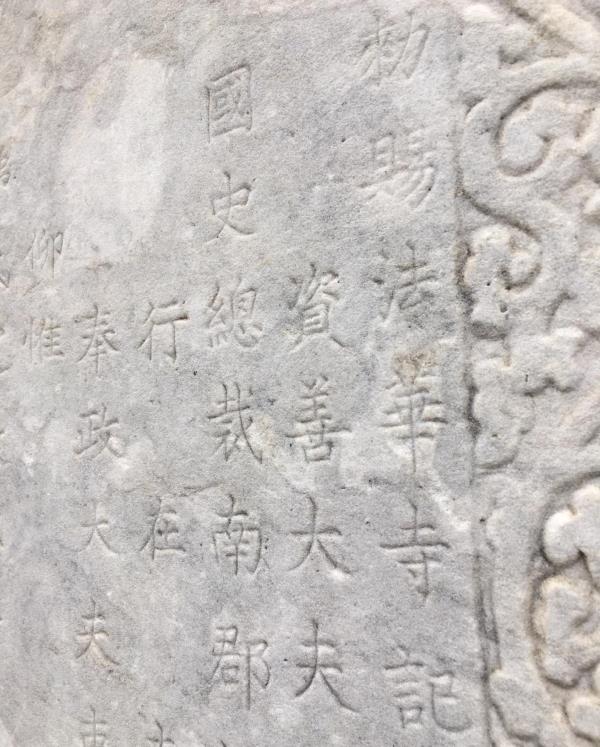 勅賜法華寺記
資善大夫
國史總裁南郡
行在
奉政大夫
仰惟